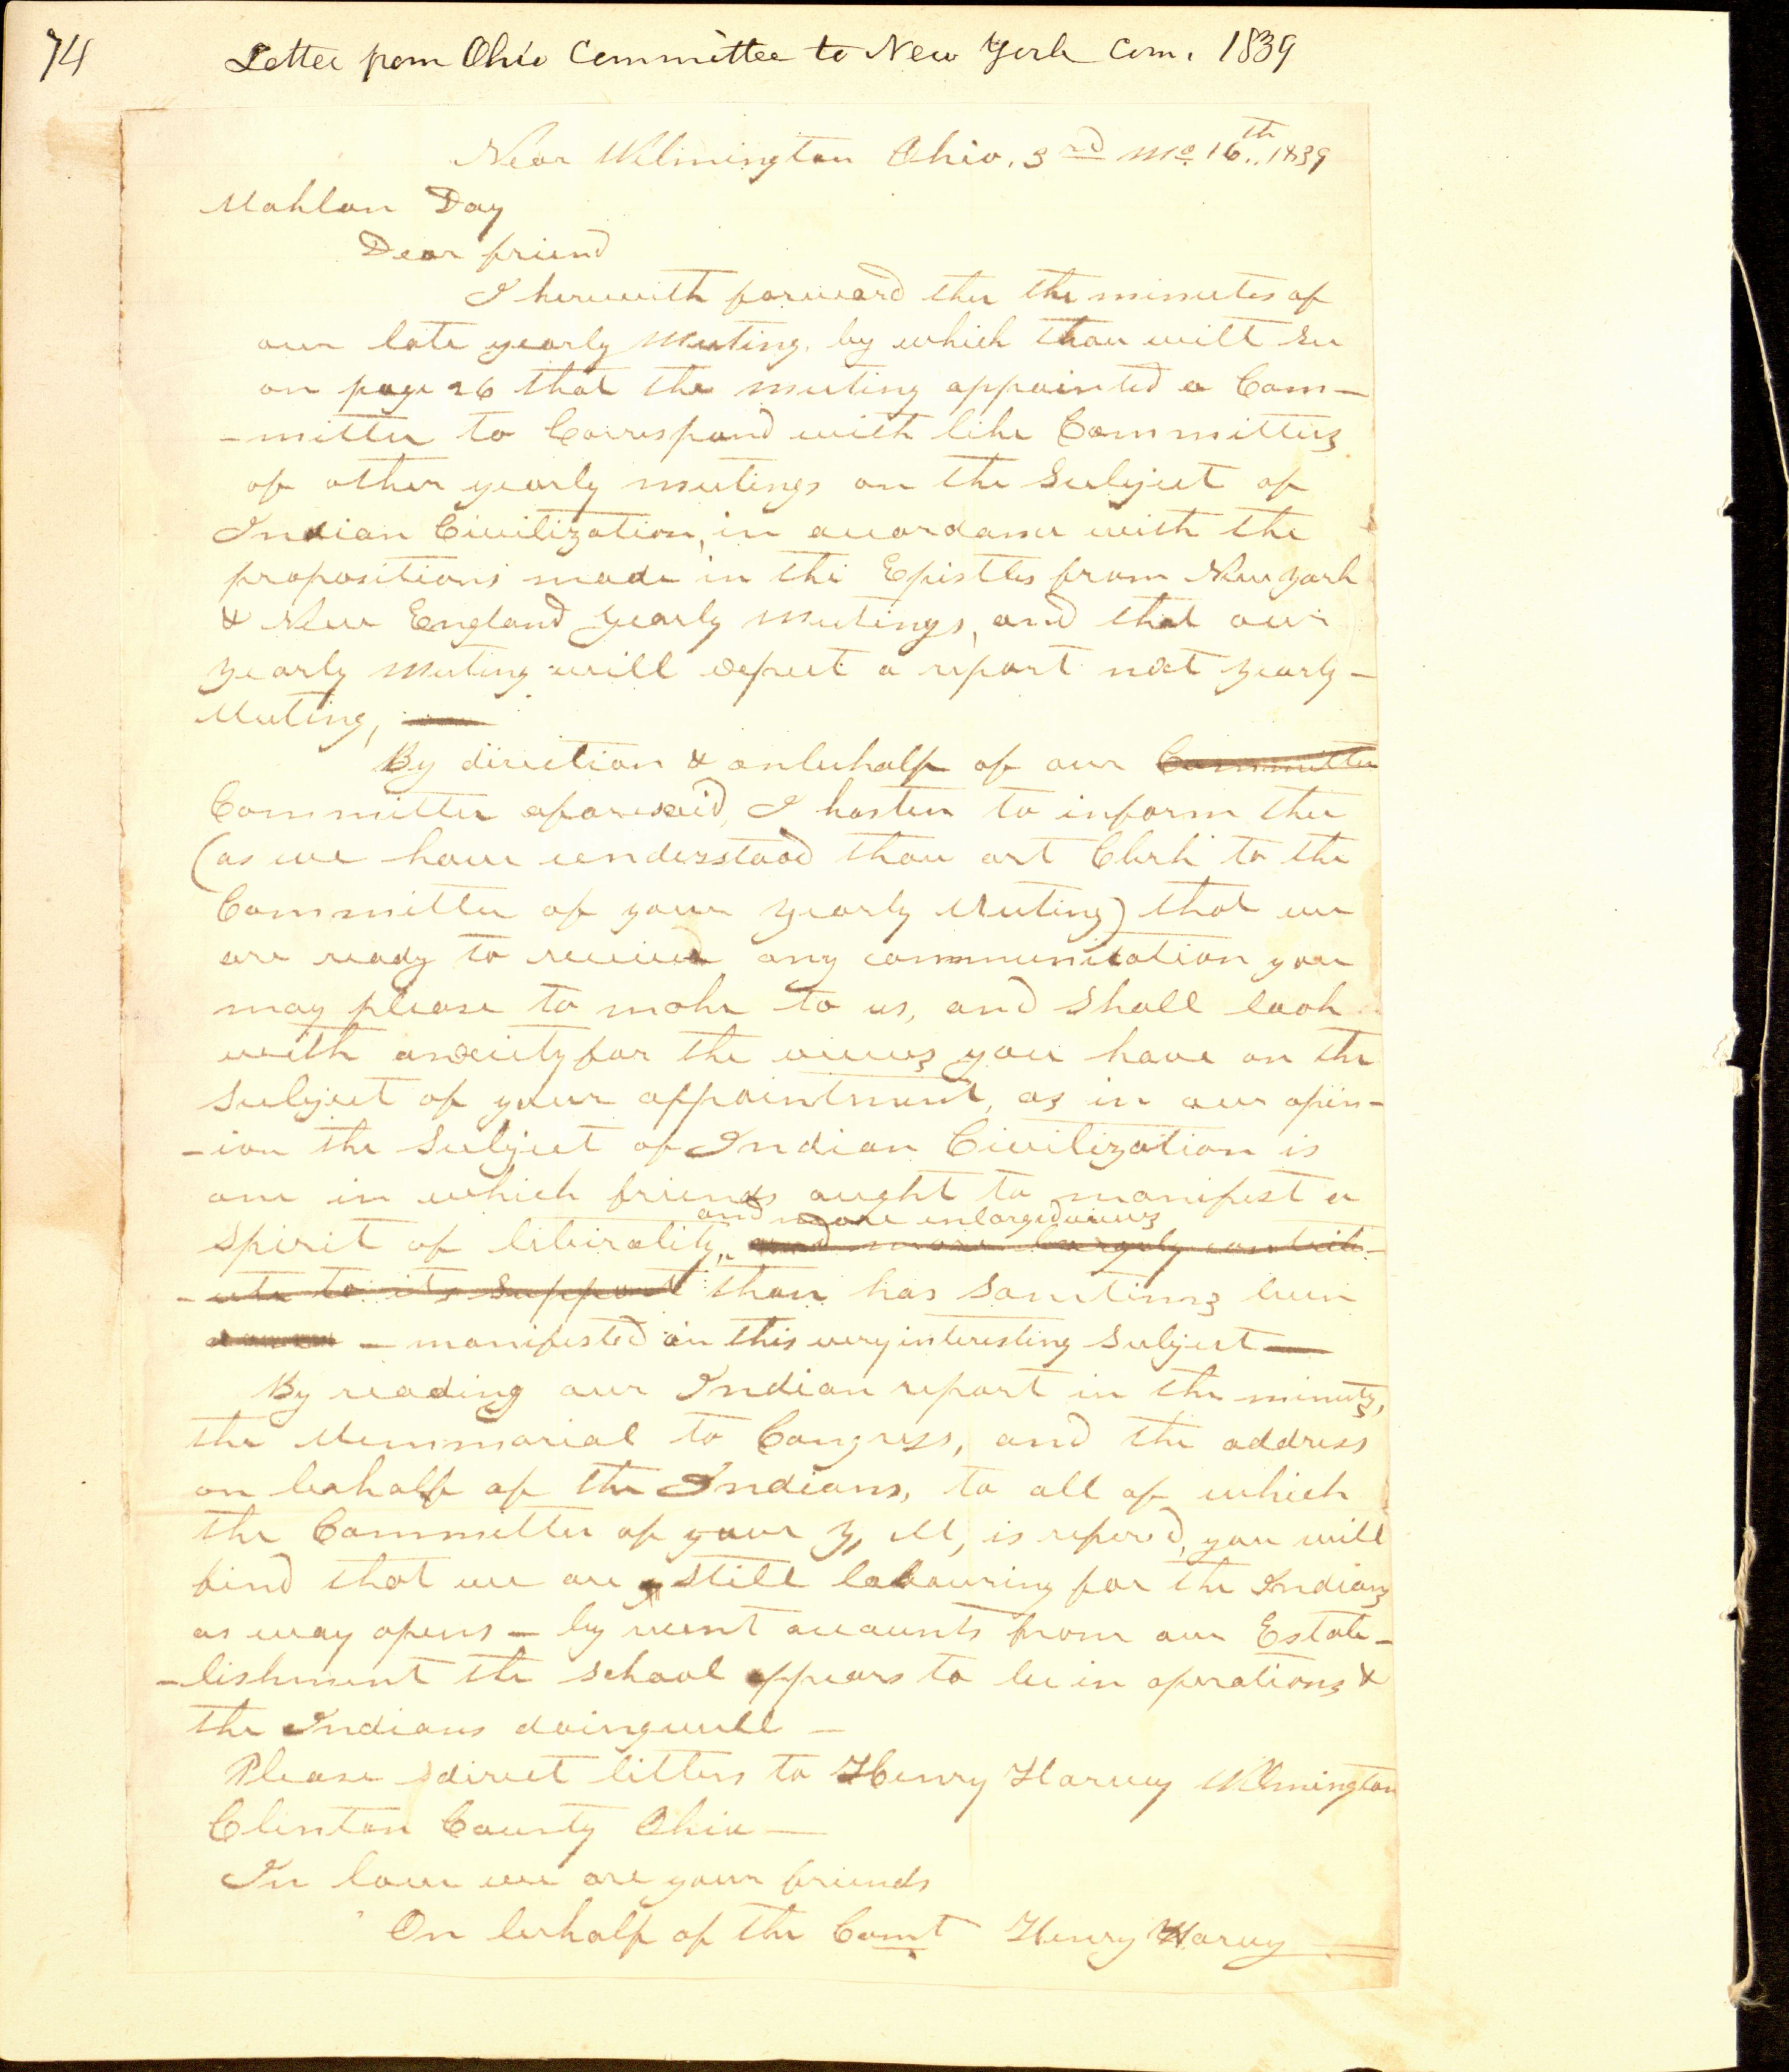 74
Letter from Ohio Committee to New York Com. 1839
Near Wilmington Ohio. 3rd Mo. 16th.. 1839
Mahlon Day
Dear friend
I herewith forward thee the minutes of
our late yearly Meeting, by which thou will see
on page 26 that the meeting appointed a Com-
-mittee to Correspond with like Committees
of other yearly meetings on the Subject of
Indian Civilization, in accordance with the
propositions made in the Epistles from New York
& New England Yearly Meetings, and that our
Yearly Meeting will expect a report next Yearly-
Meeting,
By direction & on behalf of our Committee
Committee aforesaid, I hasten to inform thee
(as we have understood thou art Clerk to the
Committee of your Yearly Meeting) that we
are ready to receive any communication you
may please to make to us, and Shall look
with anxiety for the views you have on the
Subject of your appointment, as in our opin-
-ion the Subject of Indian Civilization is
one in which friends ought to manifest a
and more enlarged views
Spirit of liberality, and more largely contrib-
-ute to its Support than has Sometimes been
- manifested on this very interesting Subject —
By reading our Indian report in the minutes,
the Memmorial to Congress, and the address
on behalf of the Indians, to all of which
the Committee of your Y, M, is refered, you will
find that we are still labouring for the Indians
as way opens - by recent accounts from our Estab-
-lishment the School appears to be in operations &
the Indians doing well -
Please direct letters to Henry Harvey Wilmington
Clinton County Ohio —
In love we are your friends
On behalf of the Comt Henry Harvey